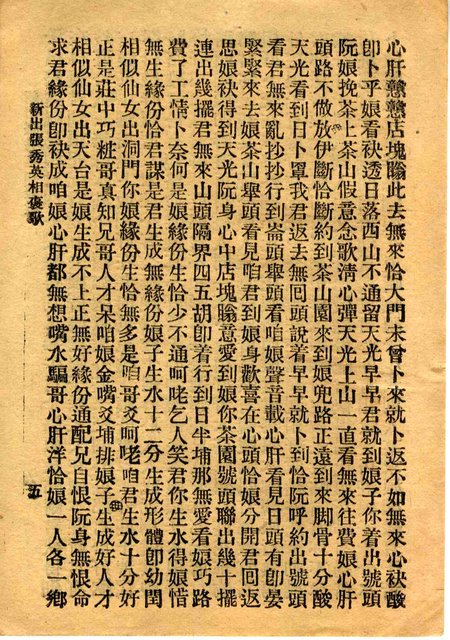 心肝戇戇店塊睏此去無來恰大門未曾卜來就卜返不如無來心袂酸
即卜乎娘看袂透日落西山不通留天光早早君就到娘子你着出號頭
阮娘挽茶上茶山假意念歌清心彈天光上山一直看無來往費娘心肝
頭路不做放伊斷恰斷約到茶山園來到娘兜路正遠到來脚骨十分酸
天光看到日卜罩我君返去無囘頭說着早早就卜到恰阮呼約出號頭
看君無來亂抄抄行到崙頭舉頭看咱娘聲音載心肝看見日頭有即晏
緊緊來去娘茶山舉頭看見咱君到娘身歡喜在心頭恰娘分開君囘返
思娘袂得到天光阮身心中店塊睏意愛到娘你茶園號頭聯出幾十擺
連出幾擺君無來山頭隔界四五胡即着行到日半埔那無愛看娘巧路
費了工情卜奈何是娘緣份生恰少不通呵咾乞人笑君你生水得娘惜
無生緣份恰君謀是君生成無緣份娘子生水十二分生成形體即幼閏
相似仙女出洞門你娘緣份生恰無多是咱哥爻呵咾咱君生水十分好
正是莊中巧粧哥真知兄哥人才呆咱娘金嘴爻埔排娘子生成好人才
相似仙女出天台是娘生成不上正無好緣份通配兄自恨阮身無恨命
求君緣份即袂成咱娘心肝都無想嘴水騙哥心肝洋恰娘一人各一鄉
新出張秀英相褒歌
五